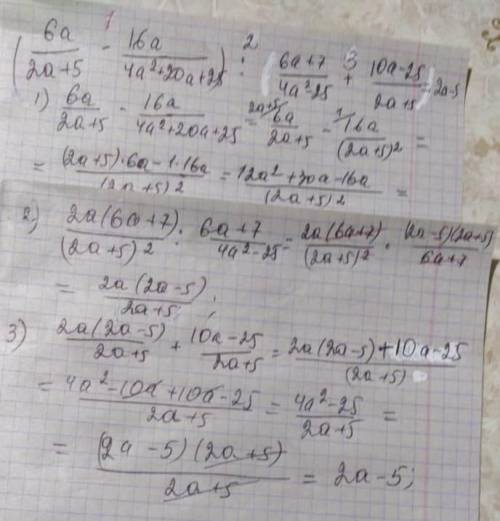 1 2 3
(6a/2a+5 - 16a/4a²+20a+25) : (6a+7/4a²-25 + 10a-25/2a+5) = 2a-5
1) 6a/2a+5 - 16a/4a²+20a+25 = ²ᵃ⁺⁵⁾6a/2a+5 - ¹⁾16a/(2a+5)² =
= (2a+5)·6a-1·16a/(2a+5)² = 12a²+30a-16a/(2a+5)² =
2) 2a(6a+7)/(2a+5)² : 6a+7/4a²-25 = 2a(6a+7)/(2a+5)² · (2a-5)(2a+5)/6a+7
= 2a(2a-5)/2a+5;
3) 2a(2a-5)/2a+5 + 10a-25/2a+5 = 2a(2a-5)+10a-25/(2a+5)
= 4a²-10a+10a-25/2a+5 = 4a²-25/2a+5 =
= (2a-5)(2a+5)/2a+5 = 2a-5;